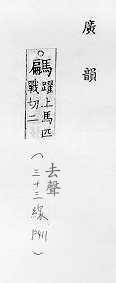 廣韻
○騗躍上馬匹戰切二
（去聲
三十三線 P411）